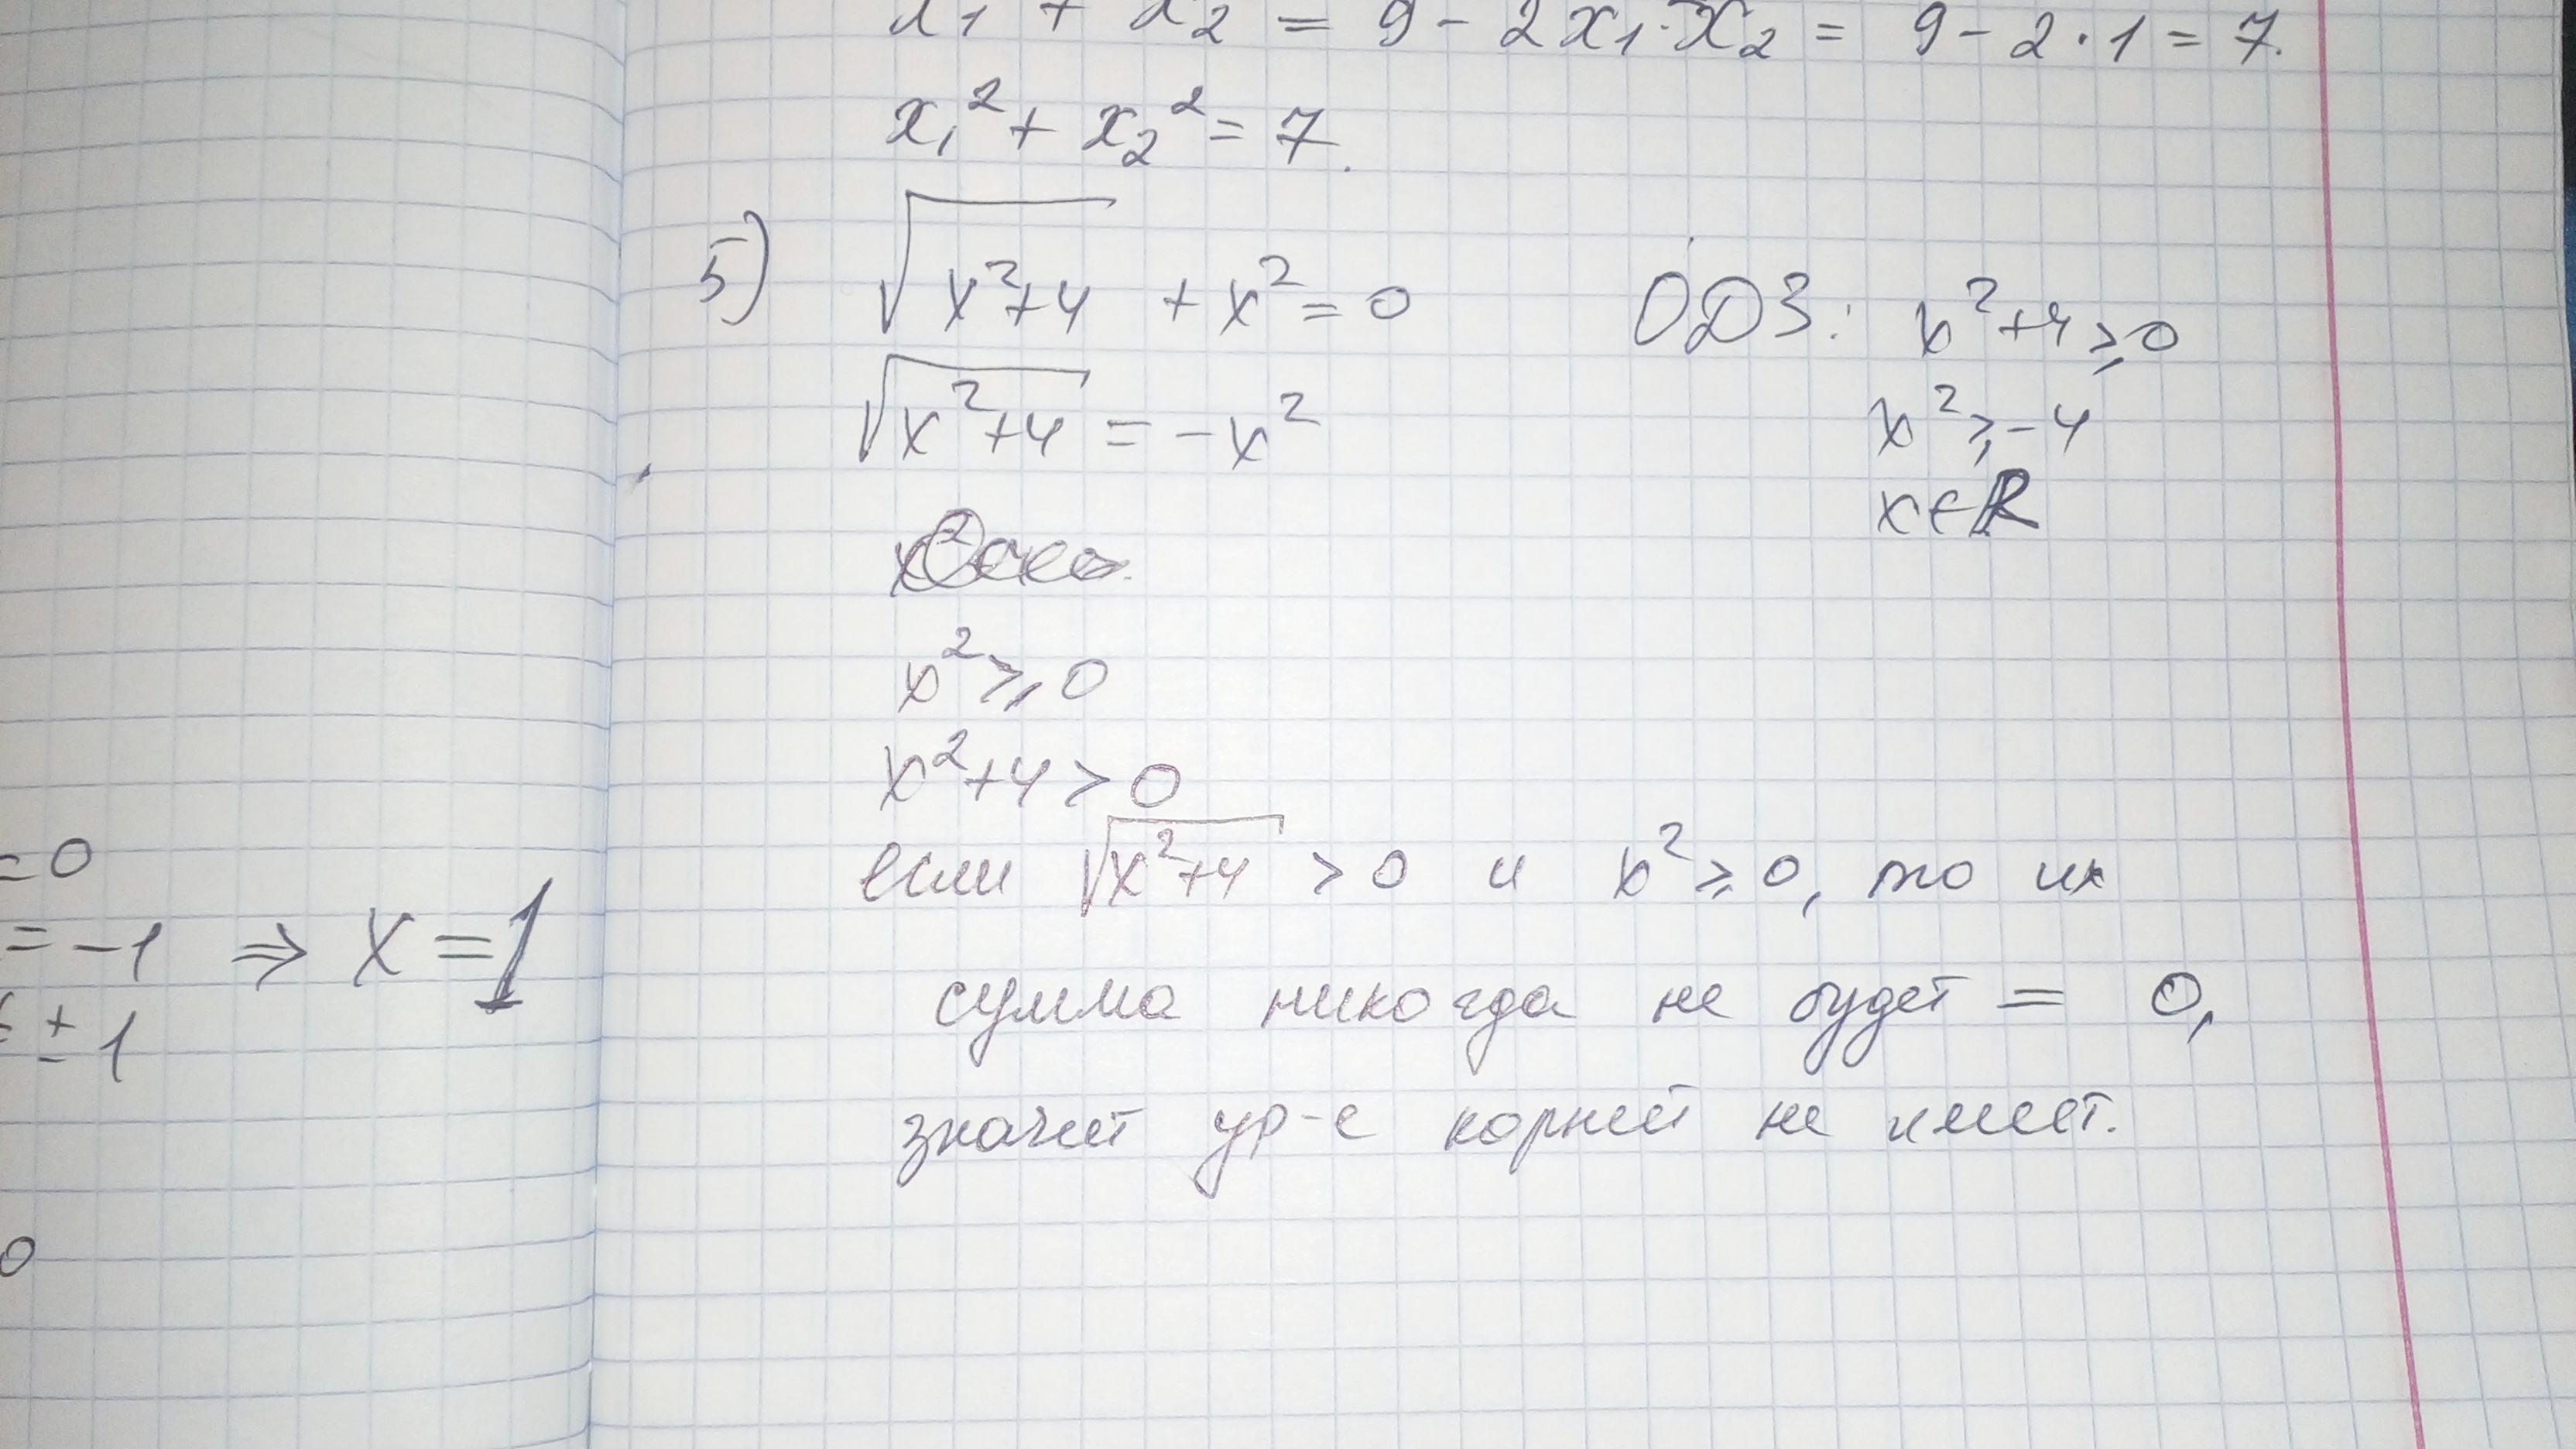 x₁ + x₂ = 9 - 2x₁·x₂ = 9 - 2·1 = 7.
x₁² + x₂² = 7.
5) √(x²+4) + x² = 0 ОДЗ: x²+4 ⩾ 0
√(x²+4) = -x² x² ⩾ -4
x ∈ R
x² ⩾ 0
x²+4 > 0
если √(x²+4) > 0 и x² ⩾ 0, то их
сумма никогда не будет = 0,
значит ур-е корней не имеет.
=0
= -1 ⇒ x = 1
± 1
0